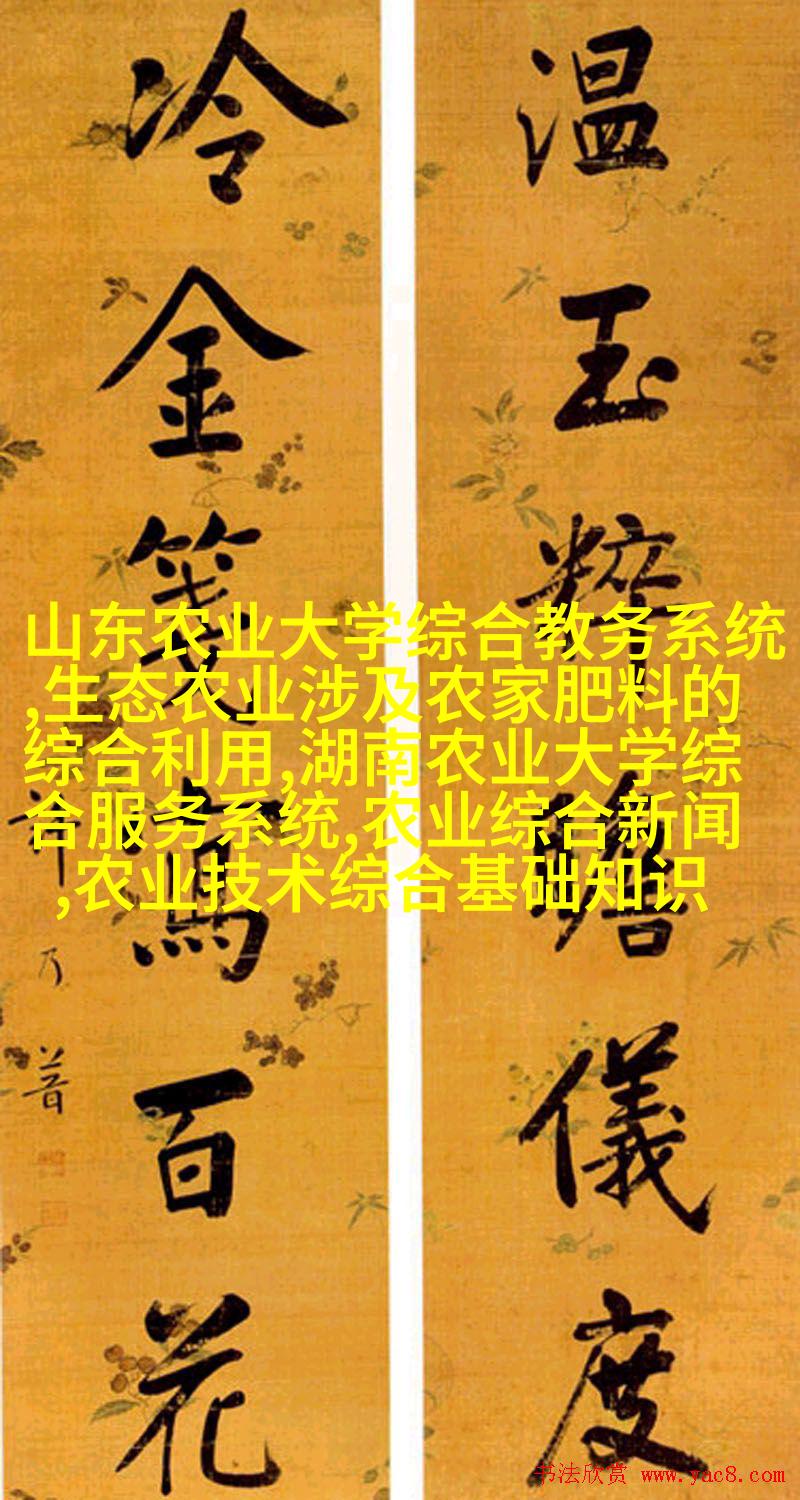 温玉粹瞻儀度
冷金箋寫百花
許乃普
山东农业大学综合教务系统
,生态农业涉及农家肥料的
综合利用,湖南农业大学综
合服务系统,农业综合新闻
,农业技术综合基础知识
书法欣赏 www.yac8.com